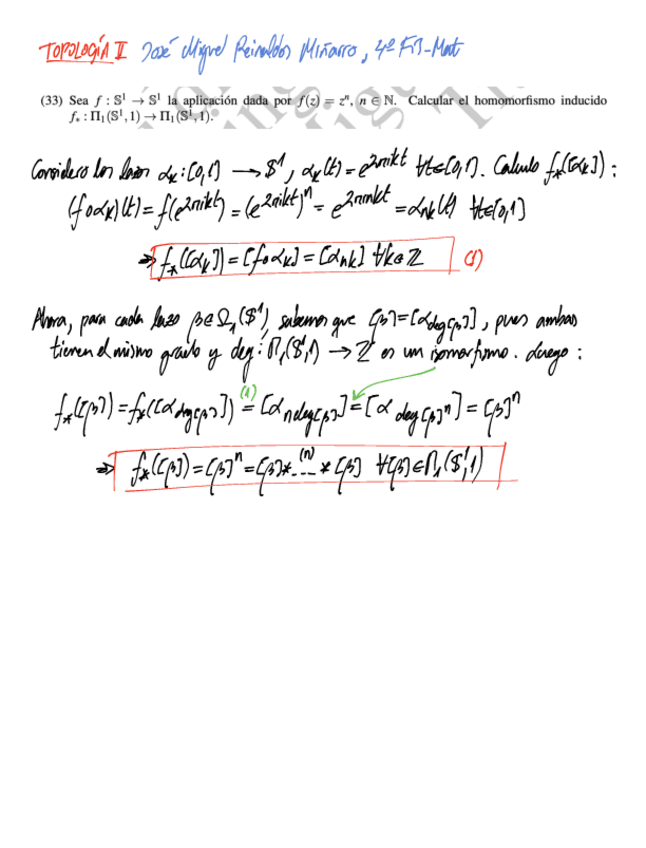 TOPOLOGÍA II José Miguel Reinaldos Miñarro, 4º FIS-Mat
(33) Sea f : 𝕊¹ → 𝕊¹ la aplicación dada por f(z) = zⁿ, n ∈ ℕ. Calcular el homomorfismo inducido
f* : Π₁(𝕊¹, 1) → Π₁(𝕊¹, 1).
Considero los lazos αₖ: [0,1] → 𝕊¹, αₖ(t) = e^{2πikt} ∀t∈[0,1]. Calculo f*([αₖ]) :
(f∘αₖ)(t) = f(e^{2πikt}) = (e^{2πikt})ⁿ = e^{2πnikt} = αₙₖ(t) ∀t∈[0,1]
⇒ f*([αₖ]) = [f∘αₖ] = [αₙₖ] ∀k∈ℤ (1)
Ahora, para cada lazo β∈Ω₁(𝕊¹), sabemos que [β] = [α_{deg[β]}], pues ambos
tienen el mismo grado y deg: Π₁(𝕊¹,1) → ℤ es un isomorfismo. Luego :
f*([β]) = f*([α_{deg[β]}]) =^{(1)} [α_{n deg[β]}] = [α_{deg[β]ⁿ}] = [β]ⁿ
⇒ f*([β]) = [β]ⁿ = [β]* .⁽ⁿ⁾. *[β] ∀[β]∈Π₁(𝕊¹,1)